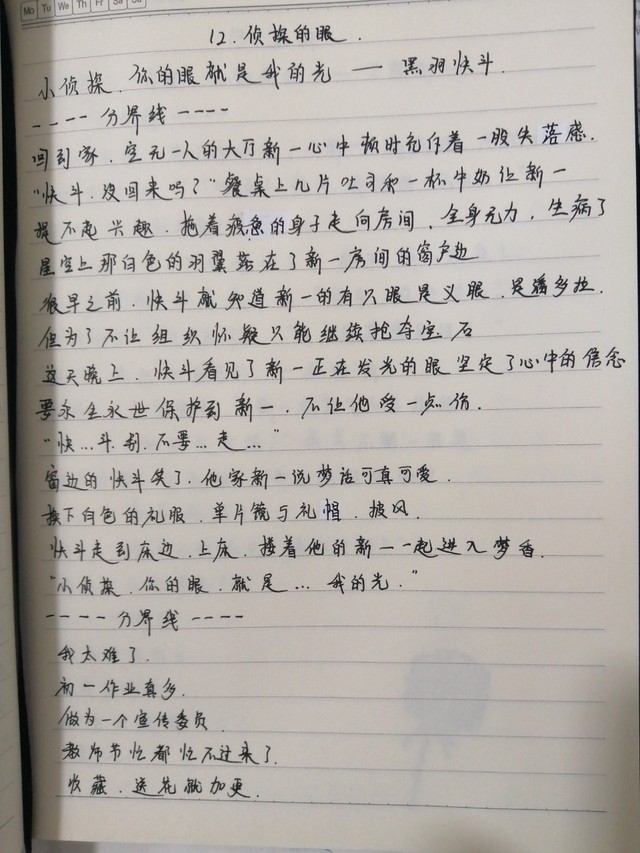 Mo Tu We Th Fr Sa Su
12. 侦探的眼.
小侦探.你的眼就是我的光 —— 黑羽快斗.
---- 分界线 ----
回到家.空无一人的大厅新一心中顿时充斥着一股失落感.
"快斗.没回来吗?"餐桌上几片吐司和一杯牛奶让新一
提不起兴趣.拖着疲惫的身子走向房间.全身无力.生病了
星空上那白色的羽翼落在了新一房间的窗户边
很早之前.快斗就知道新一的有只眼是义眼.是潘多拉.
但为了不让组织怀疑只能继续抢夺宝石
这天晚上.快斗看见了新一正在发光的眼坚定了心中的信念
要永生永世保护到新一.不让他受一点伤.
"快...斗.别.不要...走..."
窗边的快斗笑了.他家新一说梦话可真可爱.
换下白色的礼服.单片镜与礼帽.披风.
快斗走到床边.上床.搂着他的新一一起进入梦香.
"小侦探.你的眼.就是...我的光."
---- 分界线 ----
我太难了.
初一作业真多.
做为一个宣传委员
教师节忙都忙不过来了.
收藏.送花就加更.